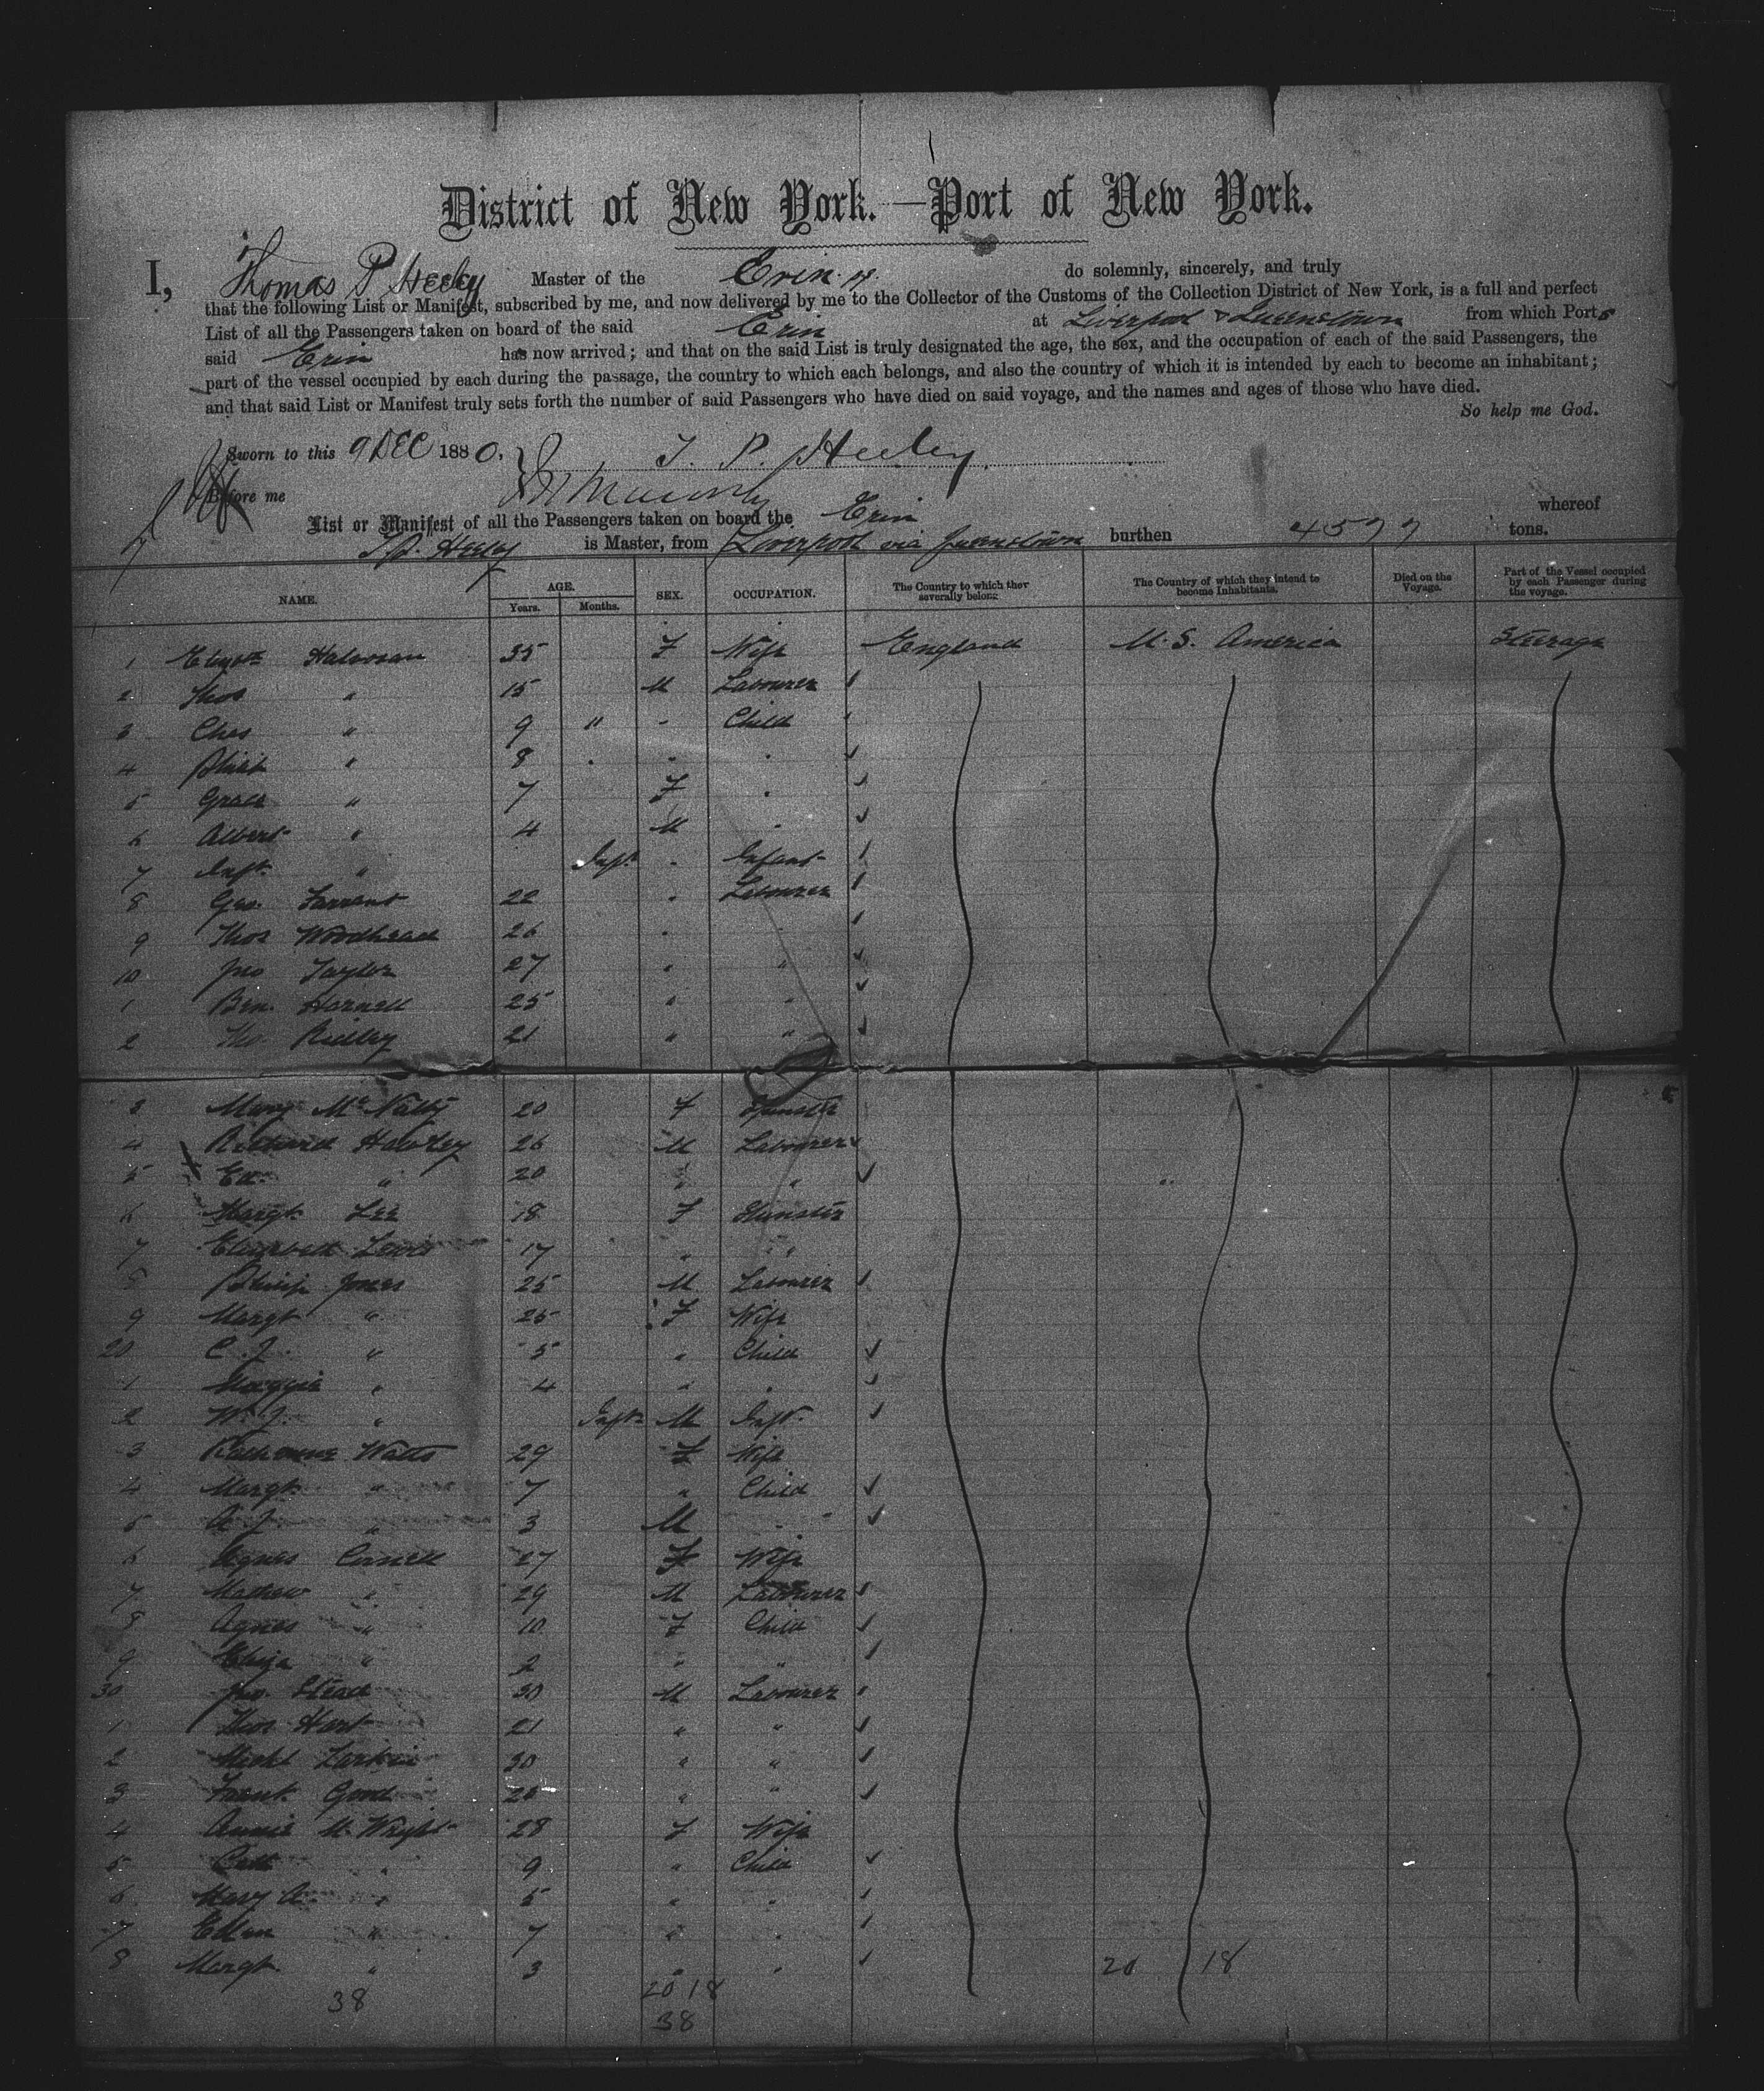 District of New York.—Port of New York.
I, Thomas P Heeley Master of the Erin do solemnly, sincerely, and truly
that the following List or Manifest, subscribed by me, and now delivered by me to the Collector of the Customs of the Collection District of New York, is a full and perfect
List of all the Passengers taken on board of the said Erin at Liverpool & Queenstown from which Ports
said Erin has now arrived; and that on the said List is truly designated the age, the sex, and the occupation of each of the said Passengers, the
part of the vessel occupied by each during the passage, the country to which each belongs, and also the country of which it is intended by each to become an inhabitant;
and that said List or Manifest truly sets forth the number of said Passengers who have died on said voyage, and the names and ages of those who have died.
So help me God.
Sworn to this 9 DEC 1880, T. P. Heeley
Before me
List or Manifest of all the Passengers taken on board the Erin whereof
T.P. Heeley is Master, from Liverpool via Queenstown burthen 4577 tons.
NAME. AGE. Years. Months. SEX. OCCUPATION. The Country to which they severally belong The Country of which they intend to become Inhabitants. Died on the Voyage. Part of the Vessel occupied by each Passenger during the voyage.
1 35 F Wife England U.S. America Steerage
2 Thos " 15 M Labourer
3 Chas " 9 " " Child
4 " 8 " "
5 Grace " 7 F "
6 Albert " 4 M "
7 Inft " Inft " Infant
8 Geo. Farrant 22 " Labourer
9 Thos Woodhead 26 " "
10 Jno Taylor 27 " "
1 Ben. Harnell 25 " "
2 Tho. Ridley 21 " "
3 Mary McNalty 20 F Spinster
4 Richard Hawley 26 M Labourer
5 Ed. " 20 " "
6 Margt Lee 18 F Spinster
7 Elizabeth Lewis 17 " "
8 Philip Jones 25 M Labourer
9 Margt " 25 F Wife
20 C. J. " 5 " Child
1 Maggie " 4 " "
2 W. J. " Inft M Inft
3 Katherine Watts 29 F Wife
4 Margt " 7 " Child
5 A J " 3 M "
6 Agnes Cornell 27 F Wife
7 Mathew " 29 M Labourer
8 Agnes " 10 F Child
9 Eliza " 2 " "
30 Jno. Stead 30 M Labourer
1 Thos Hart 21 " "
2 Michl Larkin 30 " "
3 Frank Good 26 " "
4 Annie M. Wright 28 F Wife
5 " 9 " Child
6 Mary A. " 5 " "
7 Ellen " 7 " "
8 Margt " 3 " "
20 18
38 20 18
38